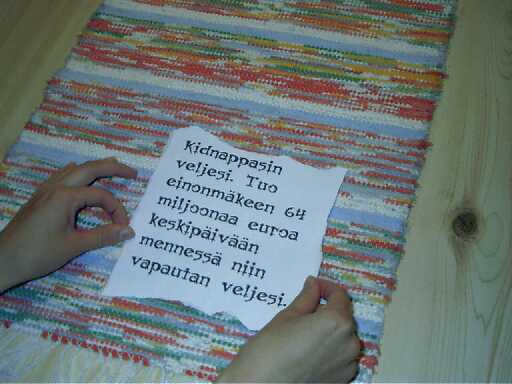 Kidnappasin
veljesi. Tuo
einonmäkeen 64
miljoonaa euroa
keskipäivään
mennessä niin
vapautan veljesi.